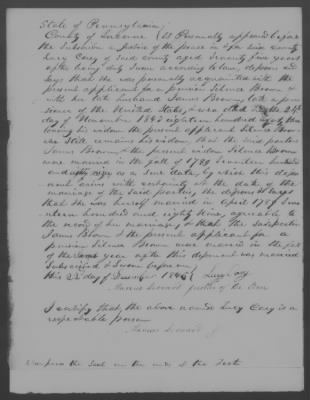 State of Pennsylvania
County of Luzerne } SS Personally appeared before
the Subscriber a Justice of the peace in & for said county
Lucy Carey of said county aged Seventy five years
after being duly Sworn according to law, deposes and
says that she was personally acquainted with the
present applicant for a pension Silence Brown &
with her late husband James Brown late a pen-
sioner of the United States, who died the 24th
day of November 1843 eighteen hundred forty three
leaving his widow the present applicant Silence Bro-
wn Still remains his widow, that the said parties
James Brown & the present widow Silence Brown
were married in the fall of 1789 Seventeen hundred
and eighty nine as a sure date, by which this depo-
nent arrives with certainty at the date of the
marriage of the said parties, the deponent says
that she was herself married in April 1789 Sev-
enteen hundred and eighty Nine, agreeable to
the record of her marriage, & that the
James Brown & the present applicant for a
pension Silence Brown were married in the fall
of the same year after this deponent was married
Subscribed & Sworn before me
this 22d day of December 1845 } Lucy Carey
Justice of the Peace
I certify that the above named Lucy Carey is a
respectable person